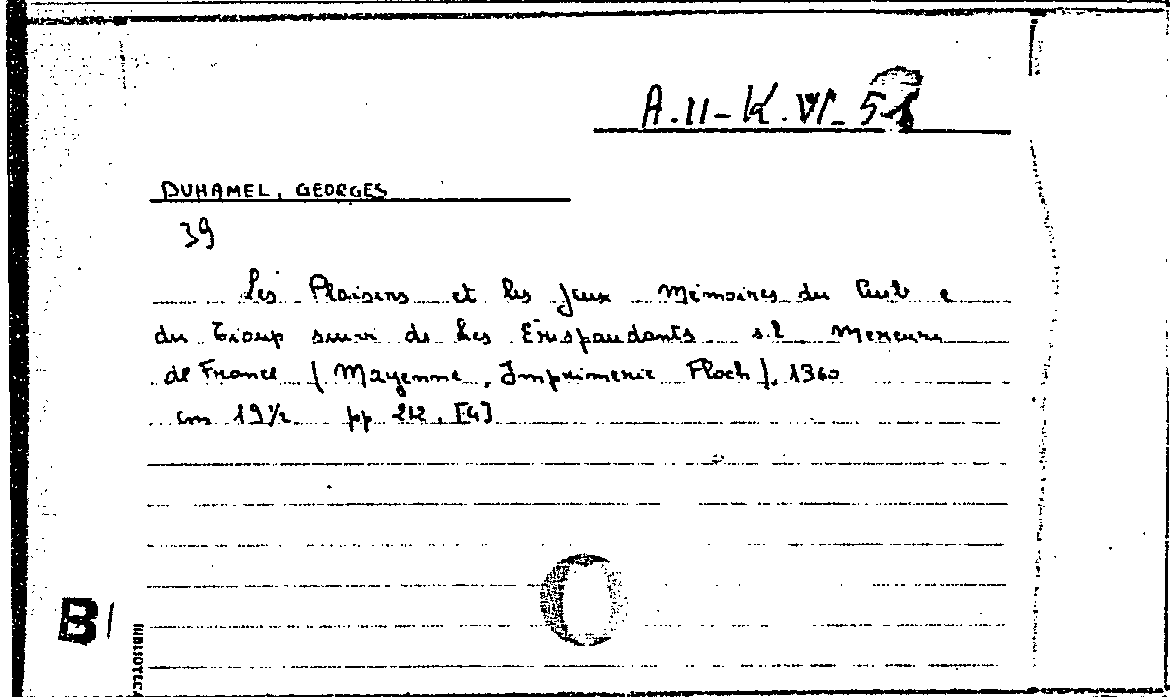 A.II-K.VI-58
DUHAMEL, GEORGES
39
Les Plaisirs et les Jeux Mémoires du Cuib e
du Tioup suivi de Les Erispaudants s.l. Mercure
de France (Mayenne, Imprimerie Floch), 1960
cm 19½ pp 212, [4]
B
BIBLIOTECA